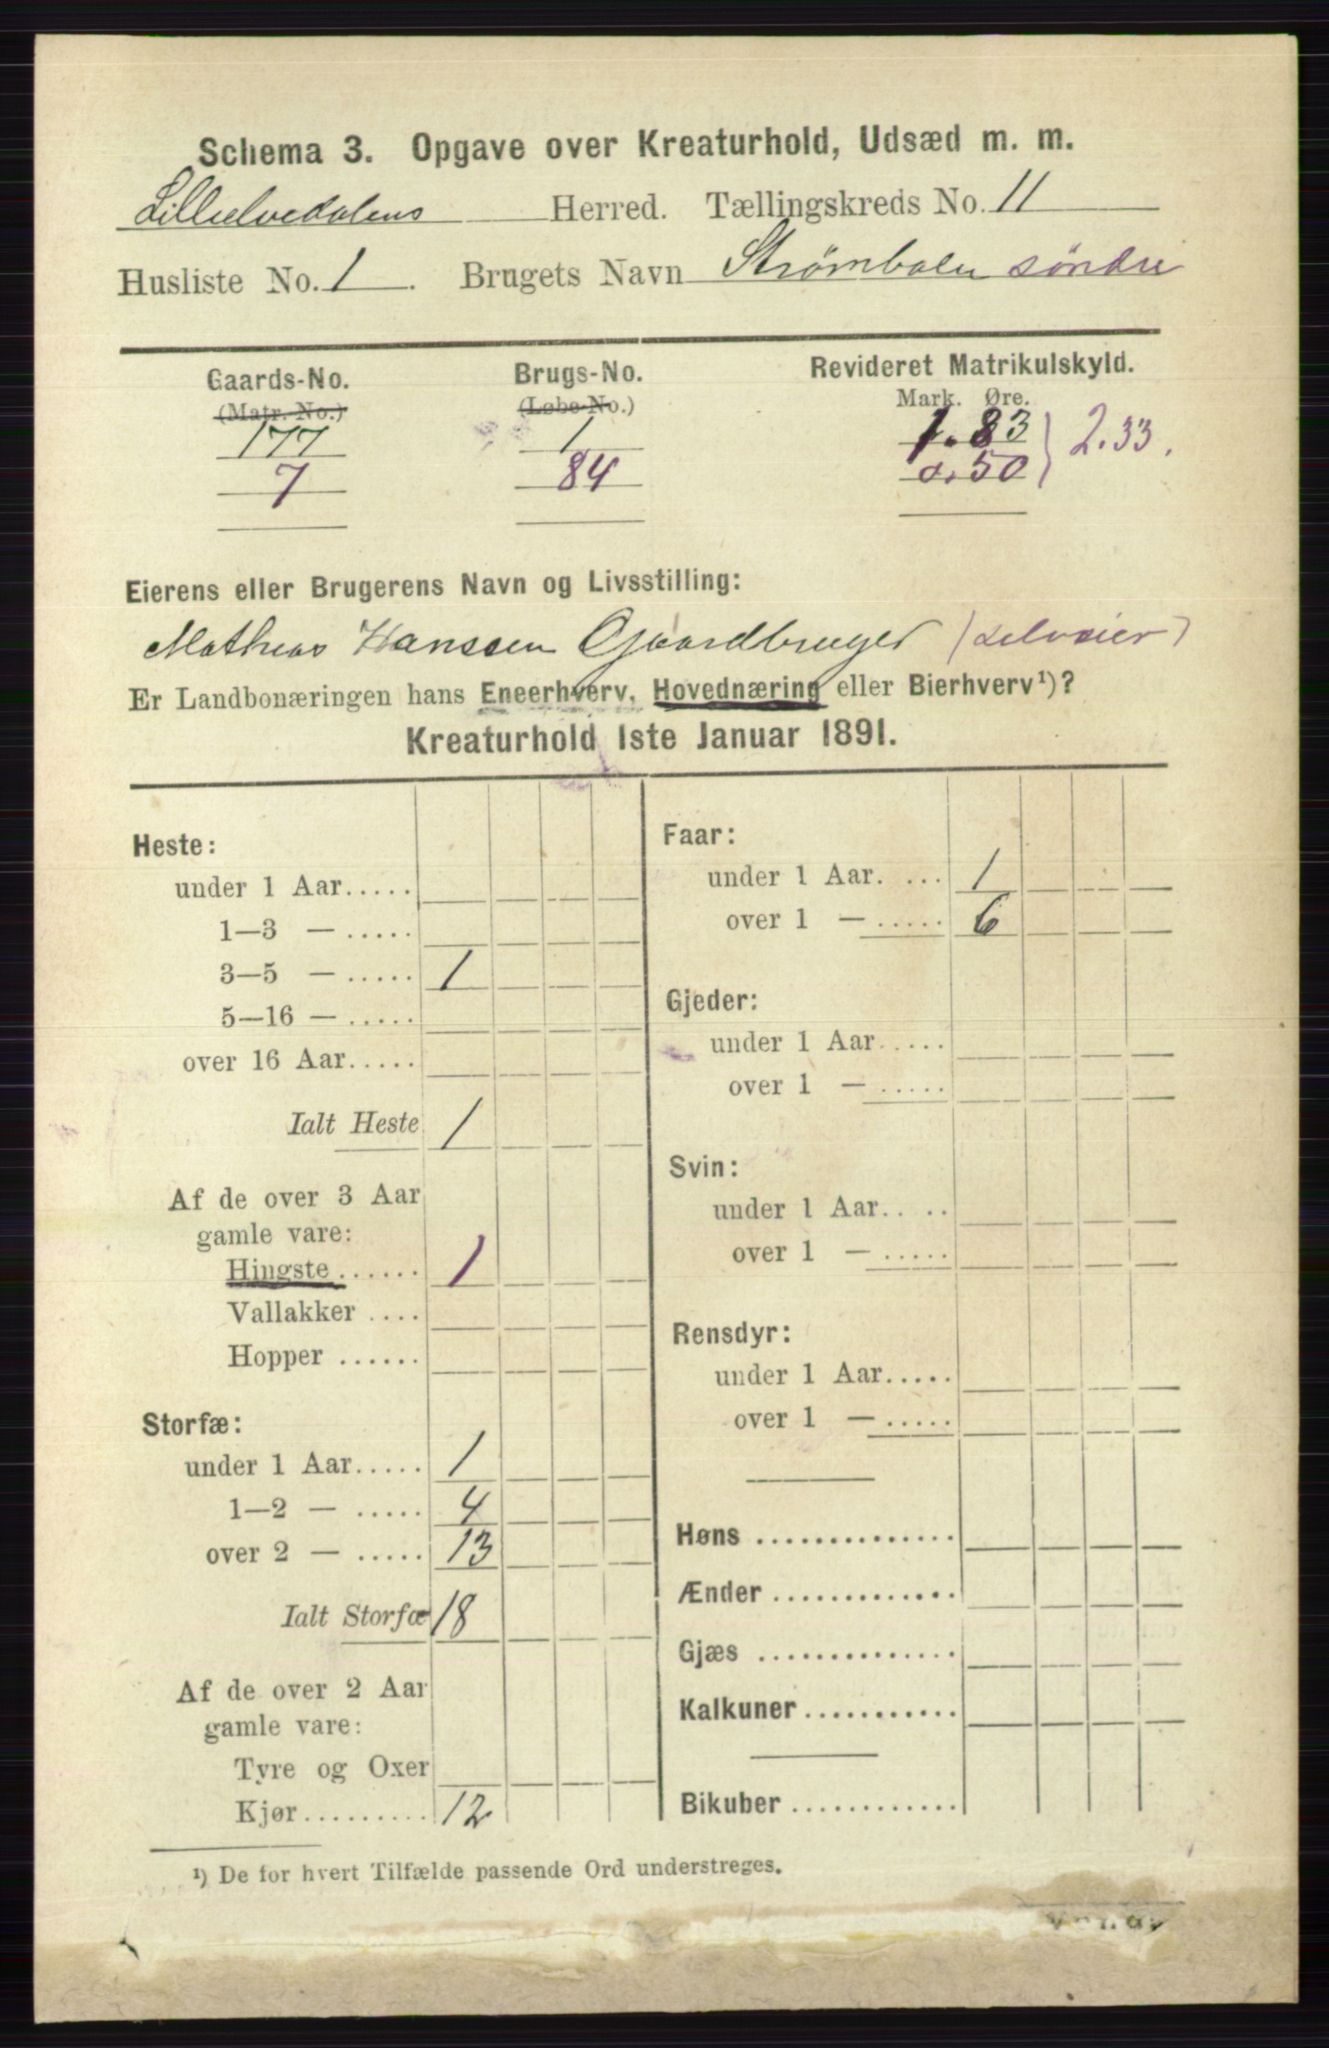 Schema 3. Opgave over Kreaturhold, Udsæd m. m.
Lilleelvedalens Herred. Tællingskreds No. 11
Husliste No. 1. Brugets Navn Strømbolen søndre
Gaards-No. Brugs-No. Revideret Matrikulskyld.
(Matr. No.) (Løbe-No.) Mark. Øre.
177 1 1.83 } 2.33.
7 84 0.50
Eierens eller Brugerens Navn og Livsstilling:
Mathias Hanssen Gaardbruger (selveier)
Er Landbonæringen hans Eneerhverv, Hovednæring eller Bierhverv¹)?
Kreaturhold 1ste Januar 1891.
Heste:
under 1 Aar.....
1—3 — .....
3—5 — ..... 1
5—16 — .....
over 16 Aar.....
Ialt Heste 1
Af de over 3 Aar
gamle vare:
Hingste ...... 1
Vallakker ....
Hopper ......
Storfæ:
under 1 Aar..... 1
1—2 — ..... 4
over 2 — ..... 13
Ialt Storfæ 18
Af de over 2 Aar
gamle vare:
Tyre og Oxer
Kjør......... 12
Faar:
under 1 Aar. ... 1
over 1 — ..... 6
Gjeder:
under 1 Aar.....
over 1 — .....
Svin:
under 1 Aar.. ..
over 1 — .....
Rensdyr:
under 1 Aar.....
over 1 — .....
Høns ..............
Ænder .............
Gjæs ..............
Kalkuner...........
Bikuber ............
¹) De for hvert Tilfælde passende Ord understreges.